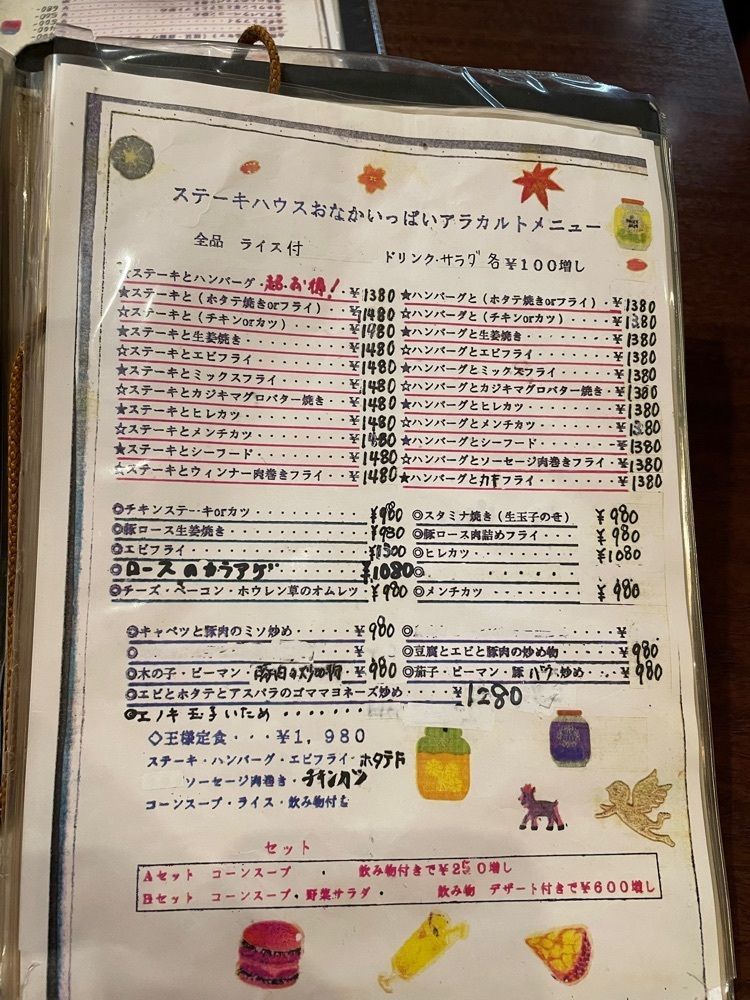 ステーキハウスおなかいっぱいアラカルトメニュー
全品 ライス付
ドリンク・サラダ 各¥100増し
☆ステーキとハンバーグ・超お得!・¥1380
★ステーキと(ホタテ焼きorフライ)・¥1480
☆ステーキと(チキンorカツ)・・・・¥1480
★ステーキと生姜焼き・・・・・・・・¥1480
☆ステーキとエビフライ・・・・・・・¥1480
★ステーキとミックスフライ・・・・・¥1480
☆ステーキとカジキマグロバター焼き・¥1480
★ステーキとヒレカツ・・・・・・・・¥1480
☆ステーキとメンチカツ・・・・・・・¥1480
★ステーキとシーフード・・・・・・・¥1480
☆ステーキとウィンナー肉巻きフライ・¥1480
★ハンバーグと(ホタテ焼きorフライ)・¥1380
☆ハンバーグと(チキンorカツ)・・・・¥1380
★ハンバーグと生姜焼き・・・・・・・・¥1380
☆ハンバーグとエビフライ・・・・・・・¥1380
★ハンバーグとミックスフライ・・・・・¥1380
☆ハンバーグとカジキマグロバター焼き・¥1380
★ハンバーグとヒレカツ・・・・・・・・¥1380
☆ハンバーグとメンチカツ・・・・・・・¥1380
★ハンバーグとシーフード・・・・・・・¥1380
☆ハンバーグとソーセージ肉巻きフライ・¥1380
★ハンバーグとカキフライ・・・・・・・¥1380
◎チキンステーキorカツ・・・・・・・¥980
◎豚ロース生姜焼き・・・・・・・・・¥980
◎エビフライ・・・・・・・・・・・・¥1300
◎ロースのカラアゲ ¥1080
◎チーズ・ベーコン・ホウレン草のオムレツ・¥980
◎スタミナ焼き(生玉子のせ) ¥980
◎豚ロース肉詰めフライ・・・ ¥980
◎ヒレカツ・・・・・・・・・ ¥1080
◎
◎メンチカツ・・・・・・・・ ¥980
◎キャベツと豚肉のミソ炒め・・・・¥980
◎
◎木の子・ピーマン・豚肉の炒め物 ¥980
◎エビとホタテとアスパラのゴママヨネーズ炒め・・・¥1280
◎エノキ玉子いため・・・・・・・
◎・・・・・・・・・・・・・¥
◎豆腐とエビと豚肉の炒め物・・¥980
◎茄子・ピーマン・豚バラ炒め・・¥980
◇王様定食・・・¥1,980
ステーキ・ハンバーグ・エビフライ・ホタテF
ソーセージ肉巻き・チキンカツ
コーンスープ・ライス・飲み物付き
セット
Aセット コーンスープ ・ 飲み物付きで¥250増し
Bセット コーンスープ・野菜サラダ・ 飲み物 デザート付きで¥600増し